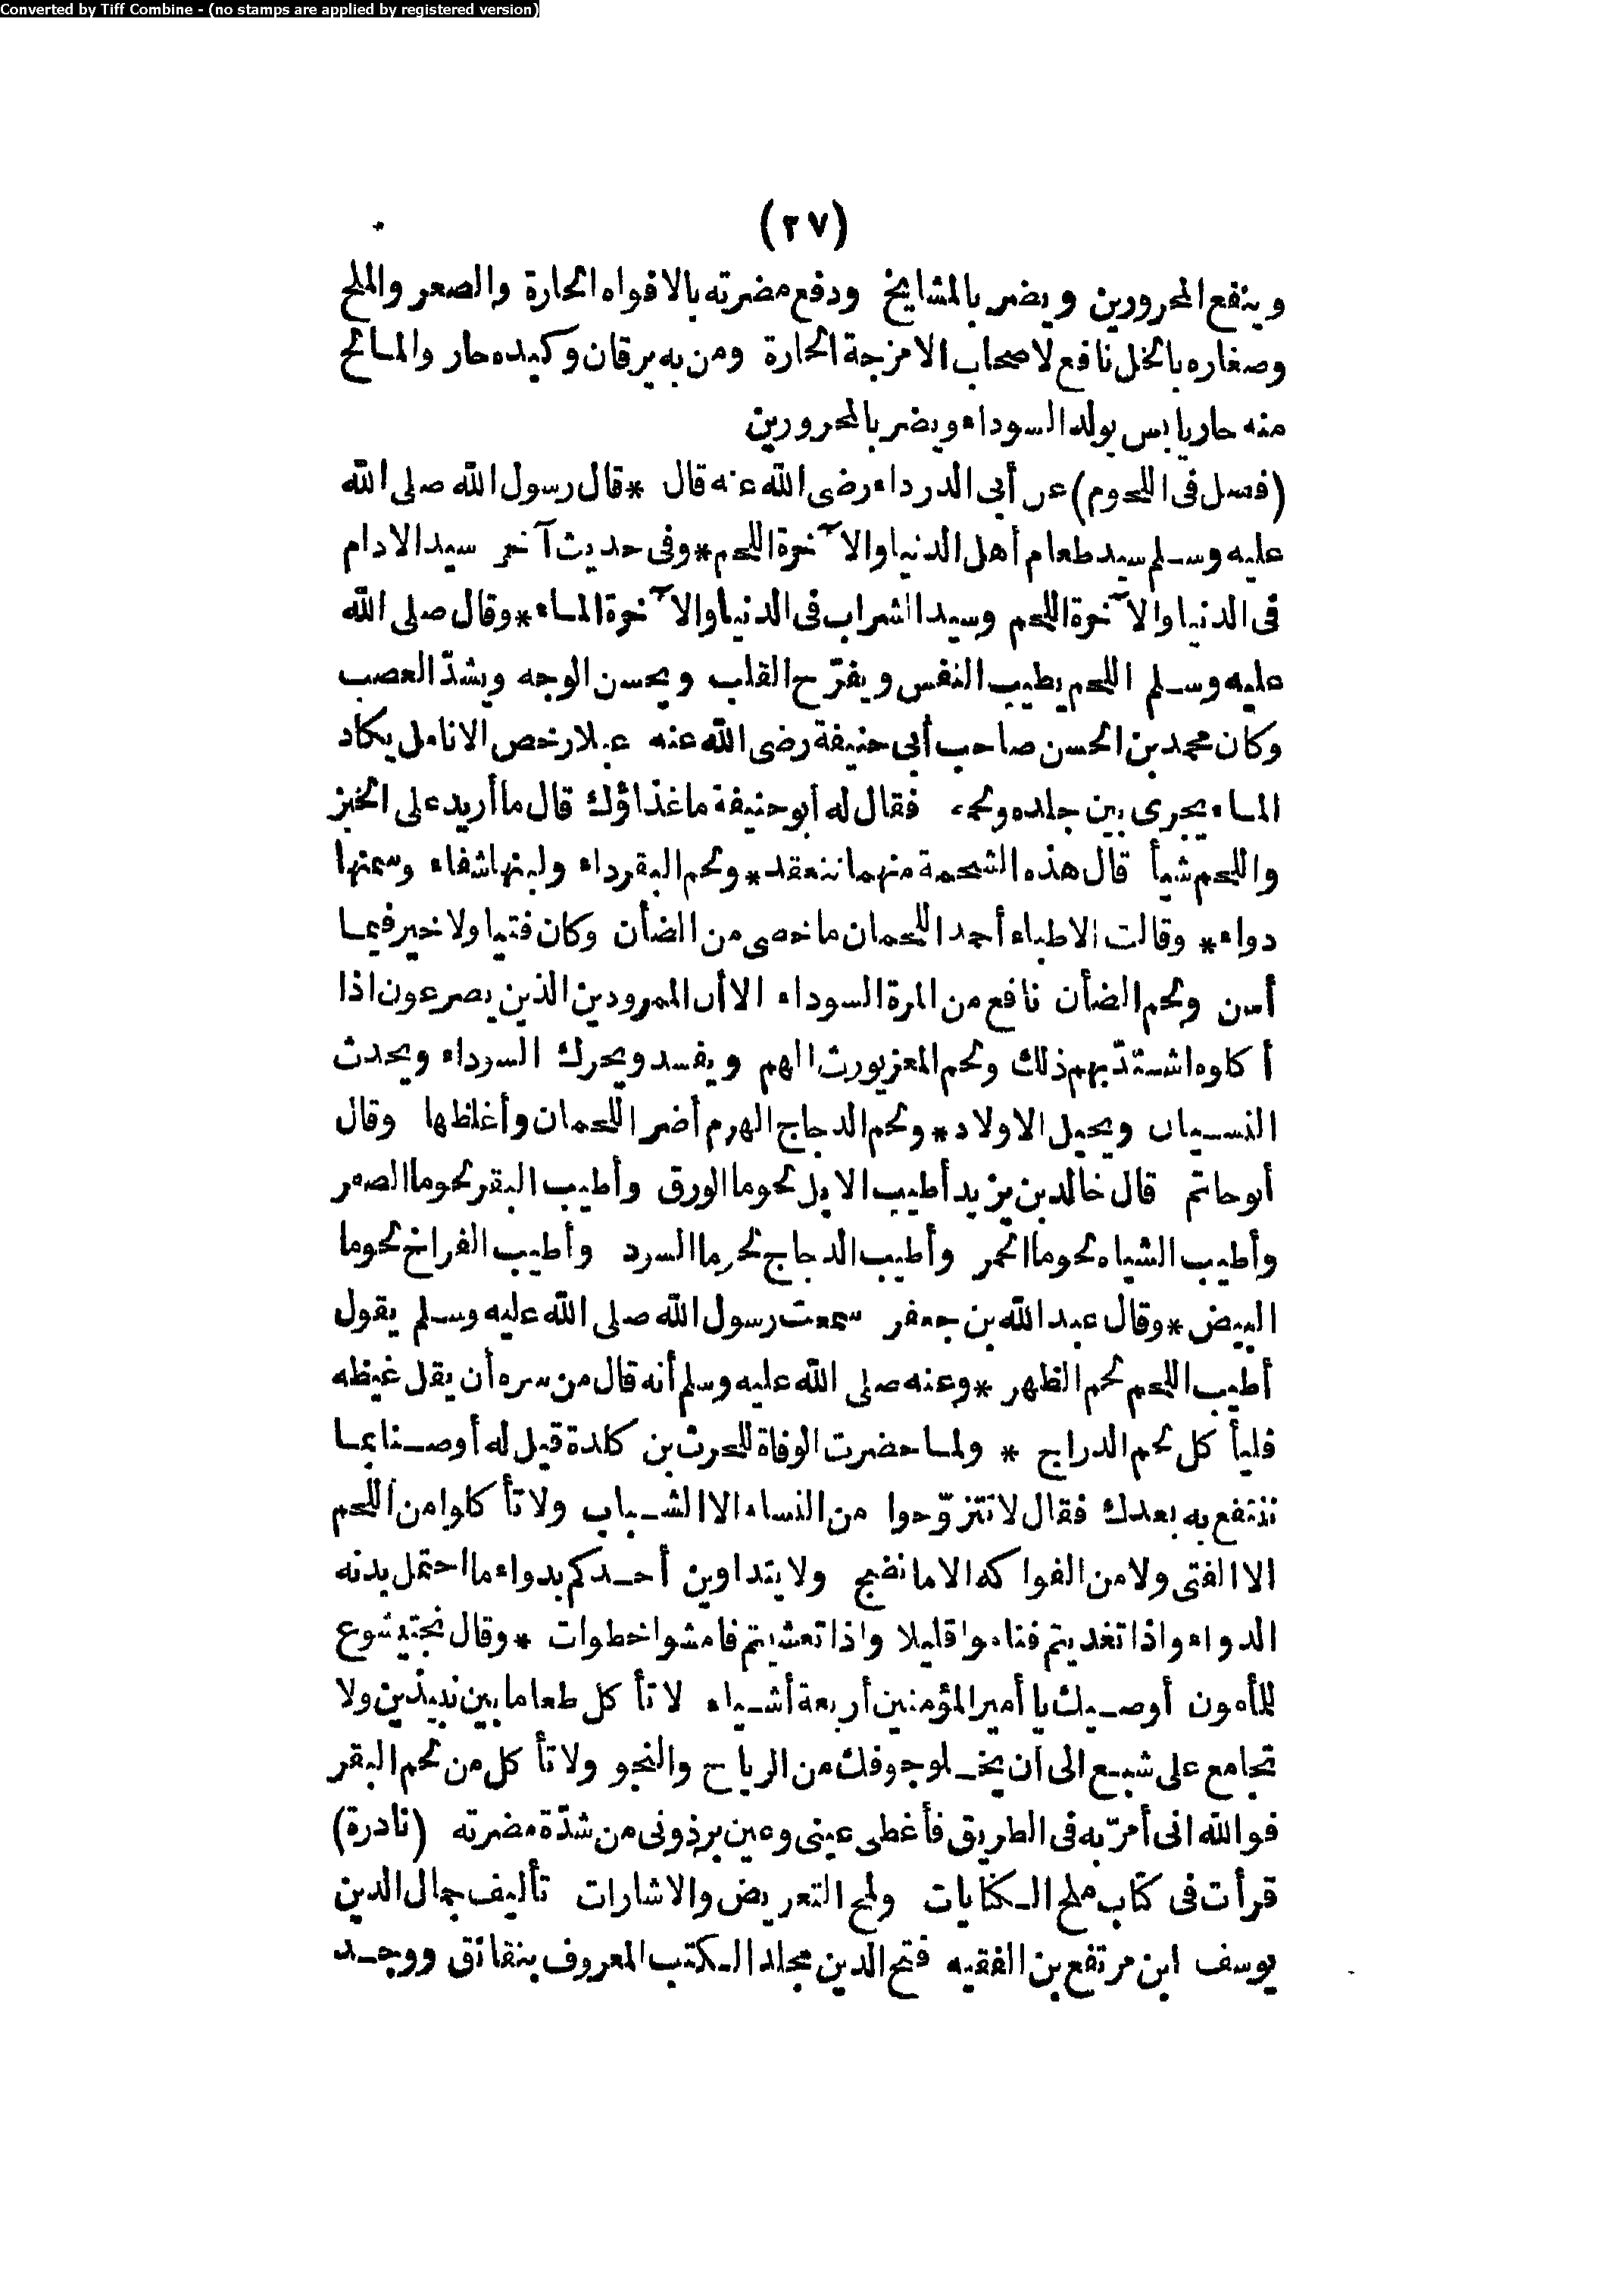 Converted by Tiff Combine - (no stamps are applied by registered version)
(٣٧)
وينفع المحرورين ويضر بالمشايخ ودفع مضرته بالافواه الحارة والصعر والملح
وصغاره بالخل نافع لاصحاب الامزجة الحارة ومن به يرقان وكبده حار والمالح
منه حار يابس يولد السوداء ويضر بالمحرورين
(فصل فى اللحوم) عن أبى الدرداء رضى الله عنه قال * قال رسول الله صلى الله
عليه وسلم سيد طعام أهل الدنيا والآخرة اللحم * وفى حديث آخر سيد الادام
فى الدنيا والآخرة اللحم وسيد الشراب فى الدنيا والآخرة الماء * وقال صلى الله
عليه وسلم اللحم يطيب النفس ويفرّح القلب ويحسن الوجه ويشدّ العصب
وكان محمد بن الحسن صاحب أبى حنيفة رضى الله عنه عبلا رخص الانامل يكاد
الماء يجرى بين جلده ولحمه فقال له أبو حنيفة ما غذاؤك قال ما أريد على الخبز
واللحم شيأ قال هذه الشحمة منهما تنعقد * ولحم البقر داء ولبنها شفاء وسمنها
دواء * وقالت الاطباء أحمد اللحمان ما خصى من الضأن وكان فتيا ولا خير فيما
أسن ولحم الضأن نافع من المرة السوداء الا أن الممرودين الذين يصرعون اذا
أكلوه اشتدّ بهم ذلك ولحم المعز يورث الهم ويفسد ويحرك السوداء ويحدث
النسيان ويحيل الاولاد * ولحم الدجاج الهرم أضر اللحمان وأغلظها وقال
أبو حاتم قال خالد بن يزيد أطيب الابل لحوما الورق وأطيب البقر لحوما الصفر
وأطيب الشياه لحوما الحمر وأطيب الدجاج لحوما السود وأطيب الفراخ لحوما
البيض * وقال عبد الله بن جعفر سمعت رسول الله صلى الله عليه وسلم يقول
أطيب اللحم لحم الظهر * وعنه صلى الله عليه وسلم أنه قال من سره أن يقل غيظه
فليأكل لحم الدراج * ولما حضرت الوفاة للحرث بن كلدة قيل له أوصنا بما
ننتفع به بعدك فقال لا تتزوّجوا من النساء الا الشباب ولا تأكلوا من اللحم
الا الفتى ولا من الفواكه الا ما نضج ولا يتداوين أحدكم بدواء ما احتمل بدنه
الدواء واذا تغديتم فناموا قليلا واذا تعشيتم فامشوا خطوات * وقال بختيشوع
للمأمون أوصيك يا أمير المؤمنين أربعة أشياء لا تأكل طعاما بين نبيذين ولا
تجامع على شبع الى أن يخلو جوفك من الرياح والنجو ولا تأكل من لحم البقر
فوالله انى أمرّ به فى الطريق فأغطى عينى وعين برذونى من شدّة مضرته (نادرة)
قرأت فى كتاب ملح الكنايات ولمح التعريض والاشارات تأليف جمال الدين
يوسف ابن مرتفع بن الفقيه فتح الدين مجلد الكتب المعروف بنقانق ووجد